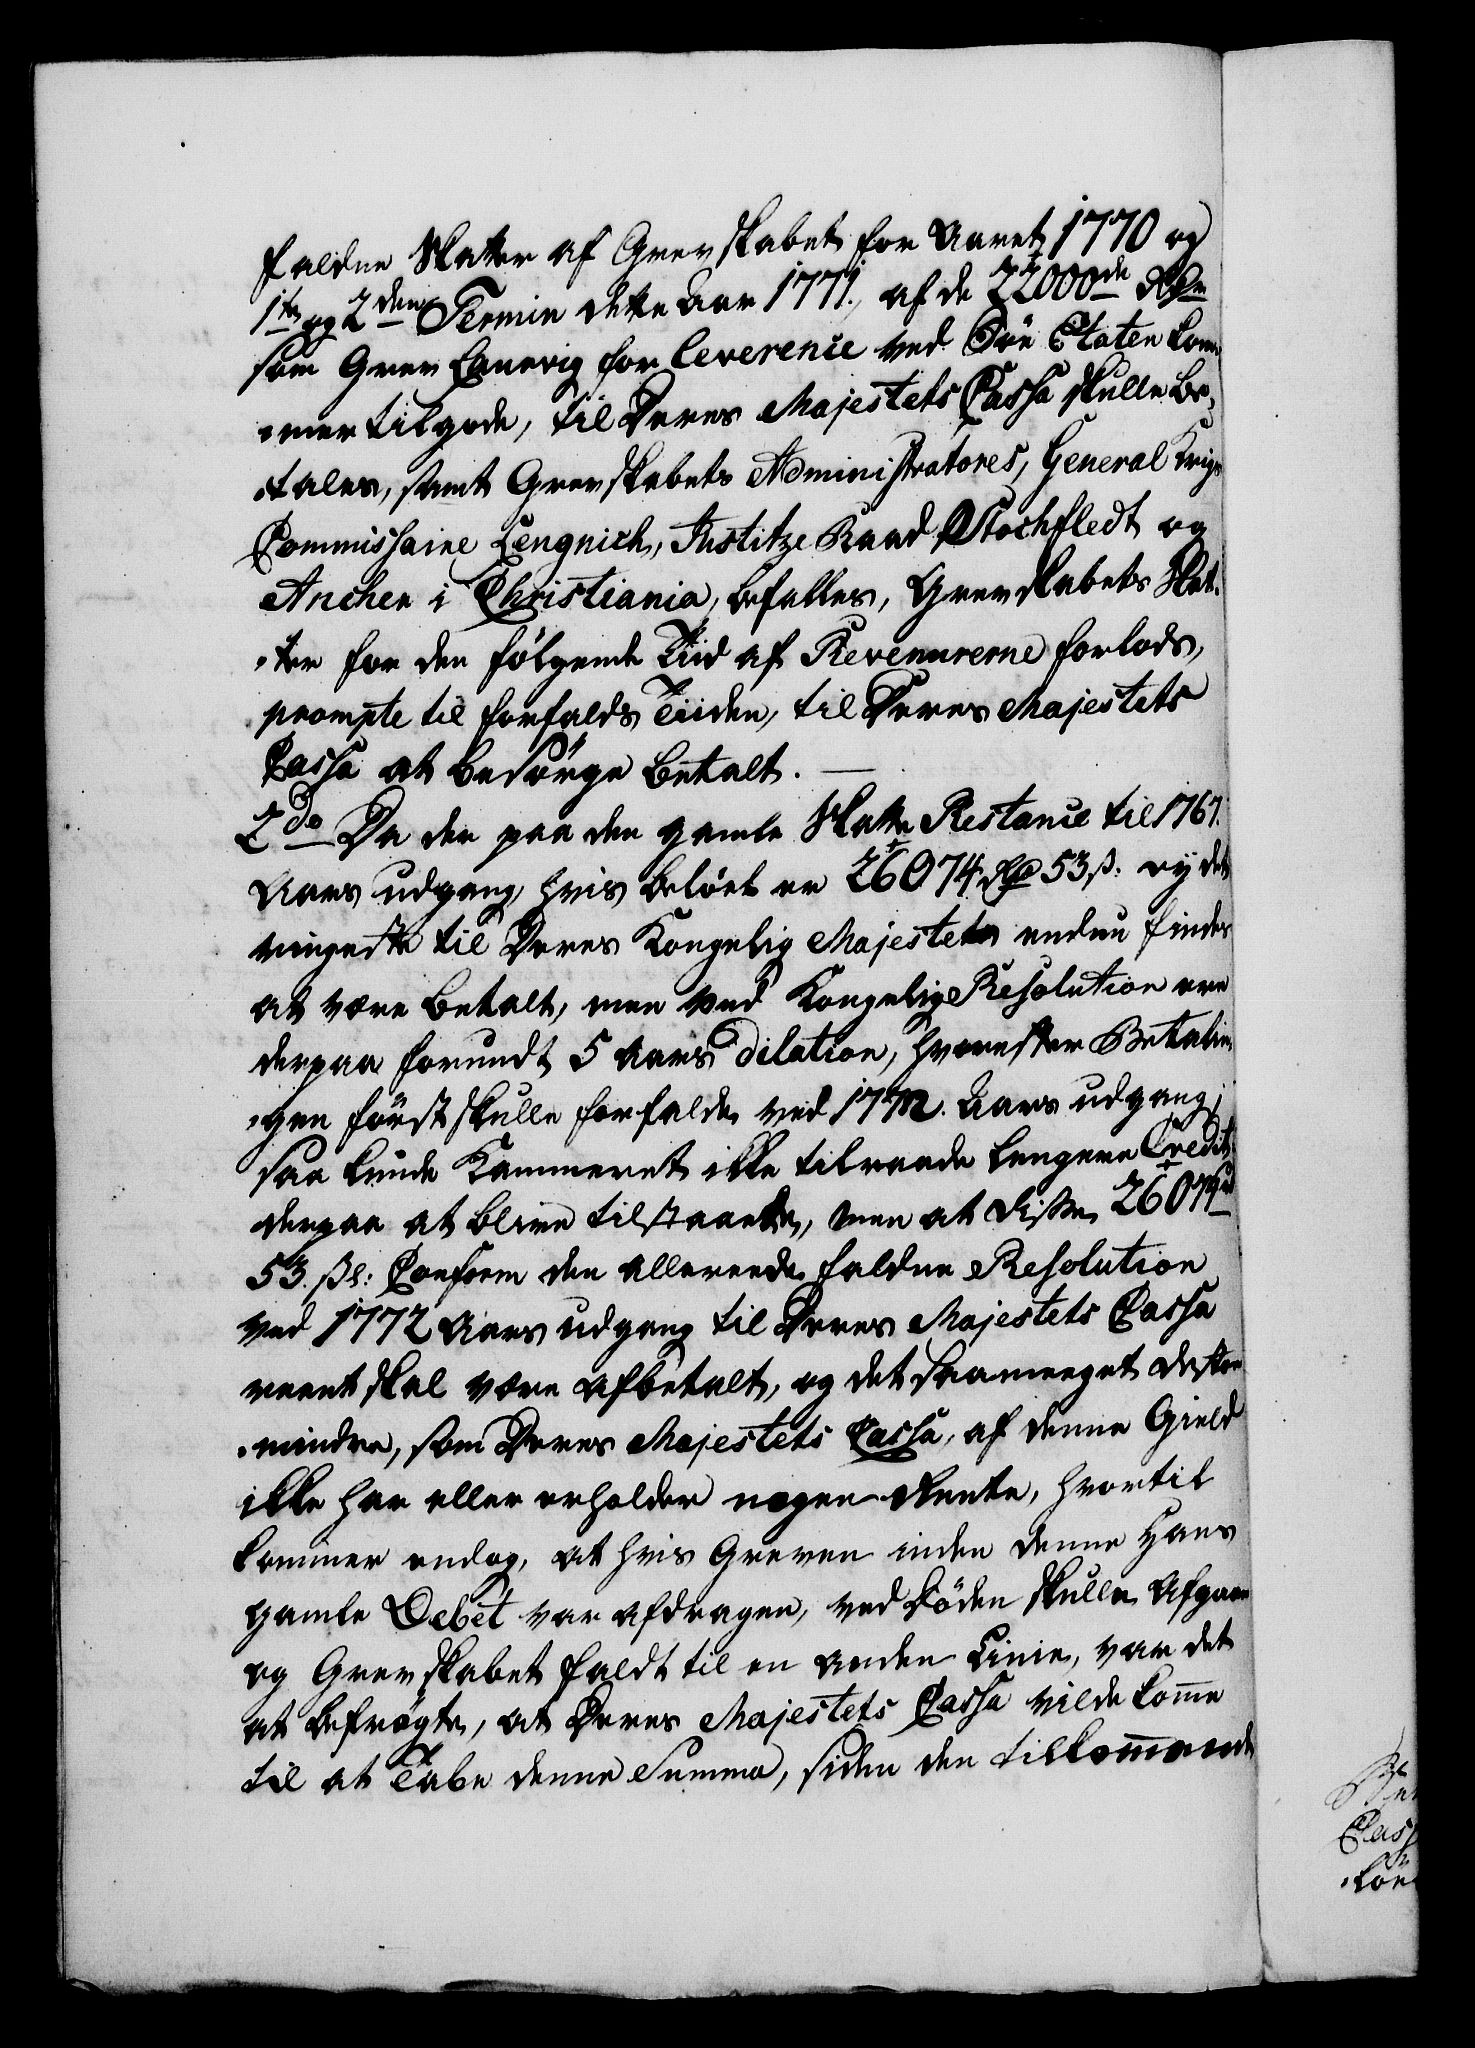 faldne Skatter af Grevskabet for Aaret 1770 og
1te og 2den Termin dette Aar 1771., af de 22000de Rdr
som Grev Laurvig for leverence ved Söe Etaten kom¬
„mer tilgode, til Deres Majestets Cassa skulle be¬
„tales, samt Grevskabets Administratores, General Krigs
Commissaire Lengnich, Justitze Raad Stochfledt og
Ancher i Christiania, befalles, Grevskabets Skat¬
„ter for den følgende Tiid af Revenuerne forlods,
prompte til forfalds Tiiden, til Deres Majestets
Cassa at besörge betalt. —
2do Da der paa den gamle Skatte Restance til 1767.
Aars udgang, hvis beløb er 26074 Rd 53 ß: ey det
ringeste til Deres Kongelig Majestet endnu findes
at være betalt, men ved Kongelig Resolution ere
derpaa forundt 5 Aars Dilation, hvorefter Betalin¬
„gen först skulle forfalde ved 1772. Aars udgang;
saa kunde Kammeret ikke tilraade lengere Credit
derpaa at blive tilstaaet, men at disse 26074rd
53. ßl: Conform den allerede faldne Resolution
ved 1772 Aars udgang til Deres Majestets Cassa
reent skal være afbetalt, og det saameeget desto
„mindre, som Deres Majestets Cassa, af denne Gield
ikke har eller erholder nogen Rente, hvortil
kommer endog, at hvis Greven inden denne Hans
gamle Debet var afdragen, ved Döden skulle afgaae
og Grevskabet faldt til en anden Linie, var det
at befrögte, at Deres Majestets Cassa vilde komme
til at Tabe denne Summa, siden den tilkommende